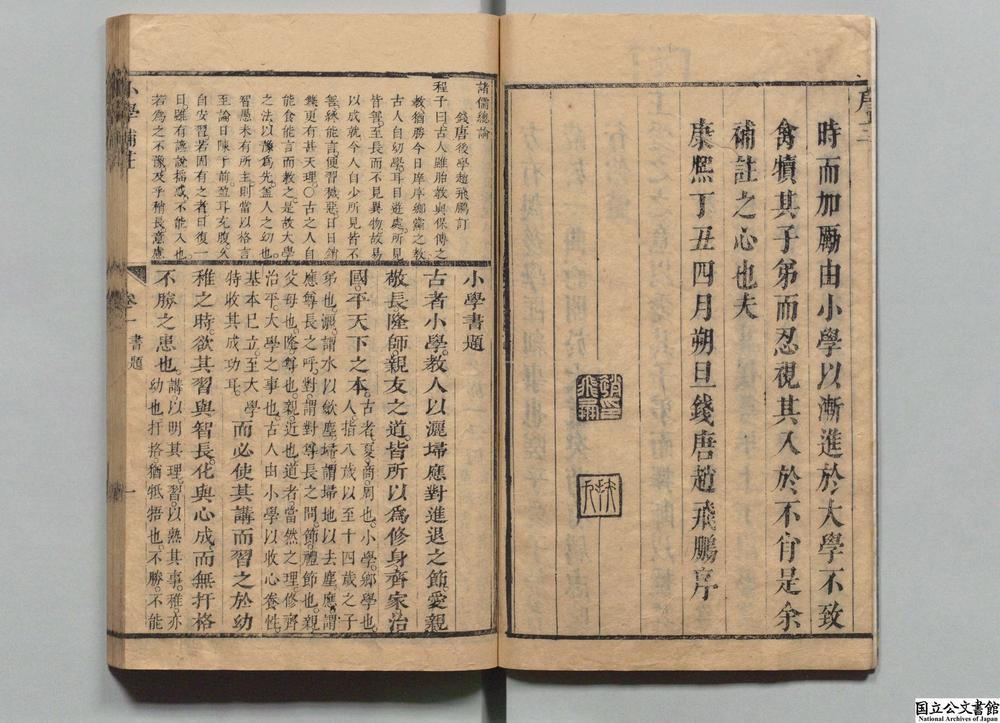 時而加勵由小學以漸進於大學不致
禽犢其子弟而忍視其入於不肖是余
補註之心也夫
康熙丁丑四月朔旦錢唐趙飛鵬序
諸儒總論
錢唐後學趙飛鵬訂
程子曰古人雖胎教與保傅之
教猶勝今日庠序鄉黨之教
古人自幼學耳目遊處所見
皆善至長而不見異物故易
以成就今人自少所見皆不
善纔能言便習穢惡日日銷
鑠更有甚天理○古之人自
能食能言而教之是故大學
之法以豫爲先蓋人之幼也
智愚未有所主則當以格言
至論日陳于前盈耳充腹久
自安習若固有之者日復一
日雖有讒說搖惑不能入也
若爲之不豫及乎稍長意慮
小學書題
古者小學教人以灑掃應對進退之節愛親
敬長隆師親友之道皆所以爲修身齊家治
國平天下之本古者夏商周也小學鄉學也
人指八歲以至十四歲之子
弟也灑謂水以歛塵埽謂埽地以去塵應謂
應尊長之呼對謂對尊長之問節禮節也親
父母也隆尊也親近也道者當然之理修齊
治平大學之事也古人由小學以收心養性
基本已立至大學
特收其成功耳而必使其講而習之於幼
稚之時欲其習與智長化與心成而無扞格
不勝之患也講以明其理習以熟其事稚亦
幼也扞格猶牴牾也不勝不能
小學補註
卷一
書題
一
国立公文書館
National Archives of Japan